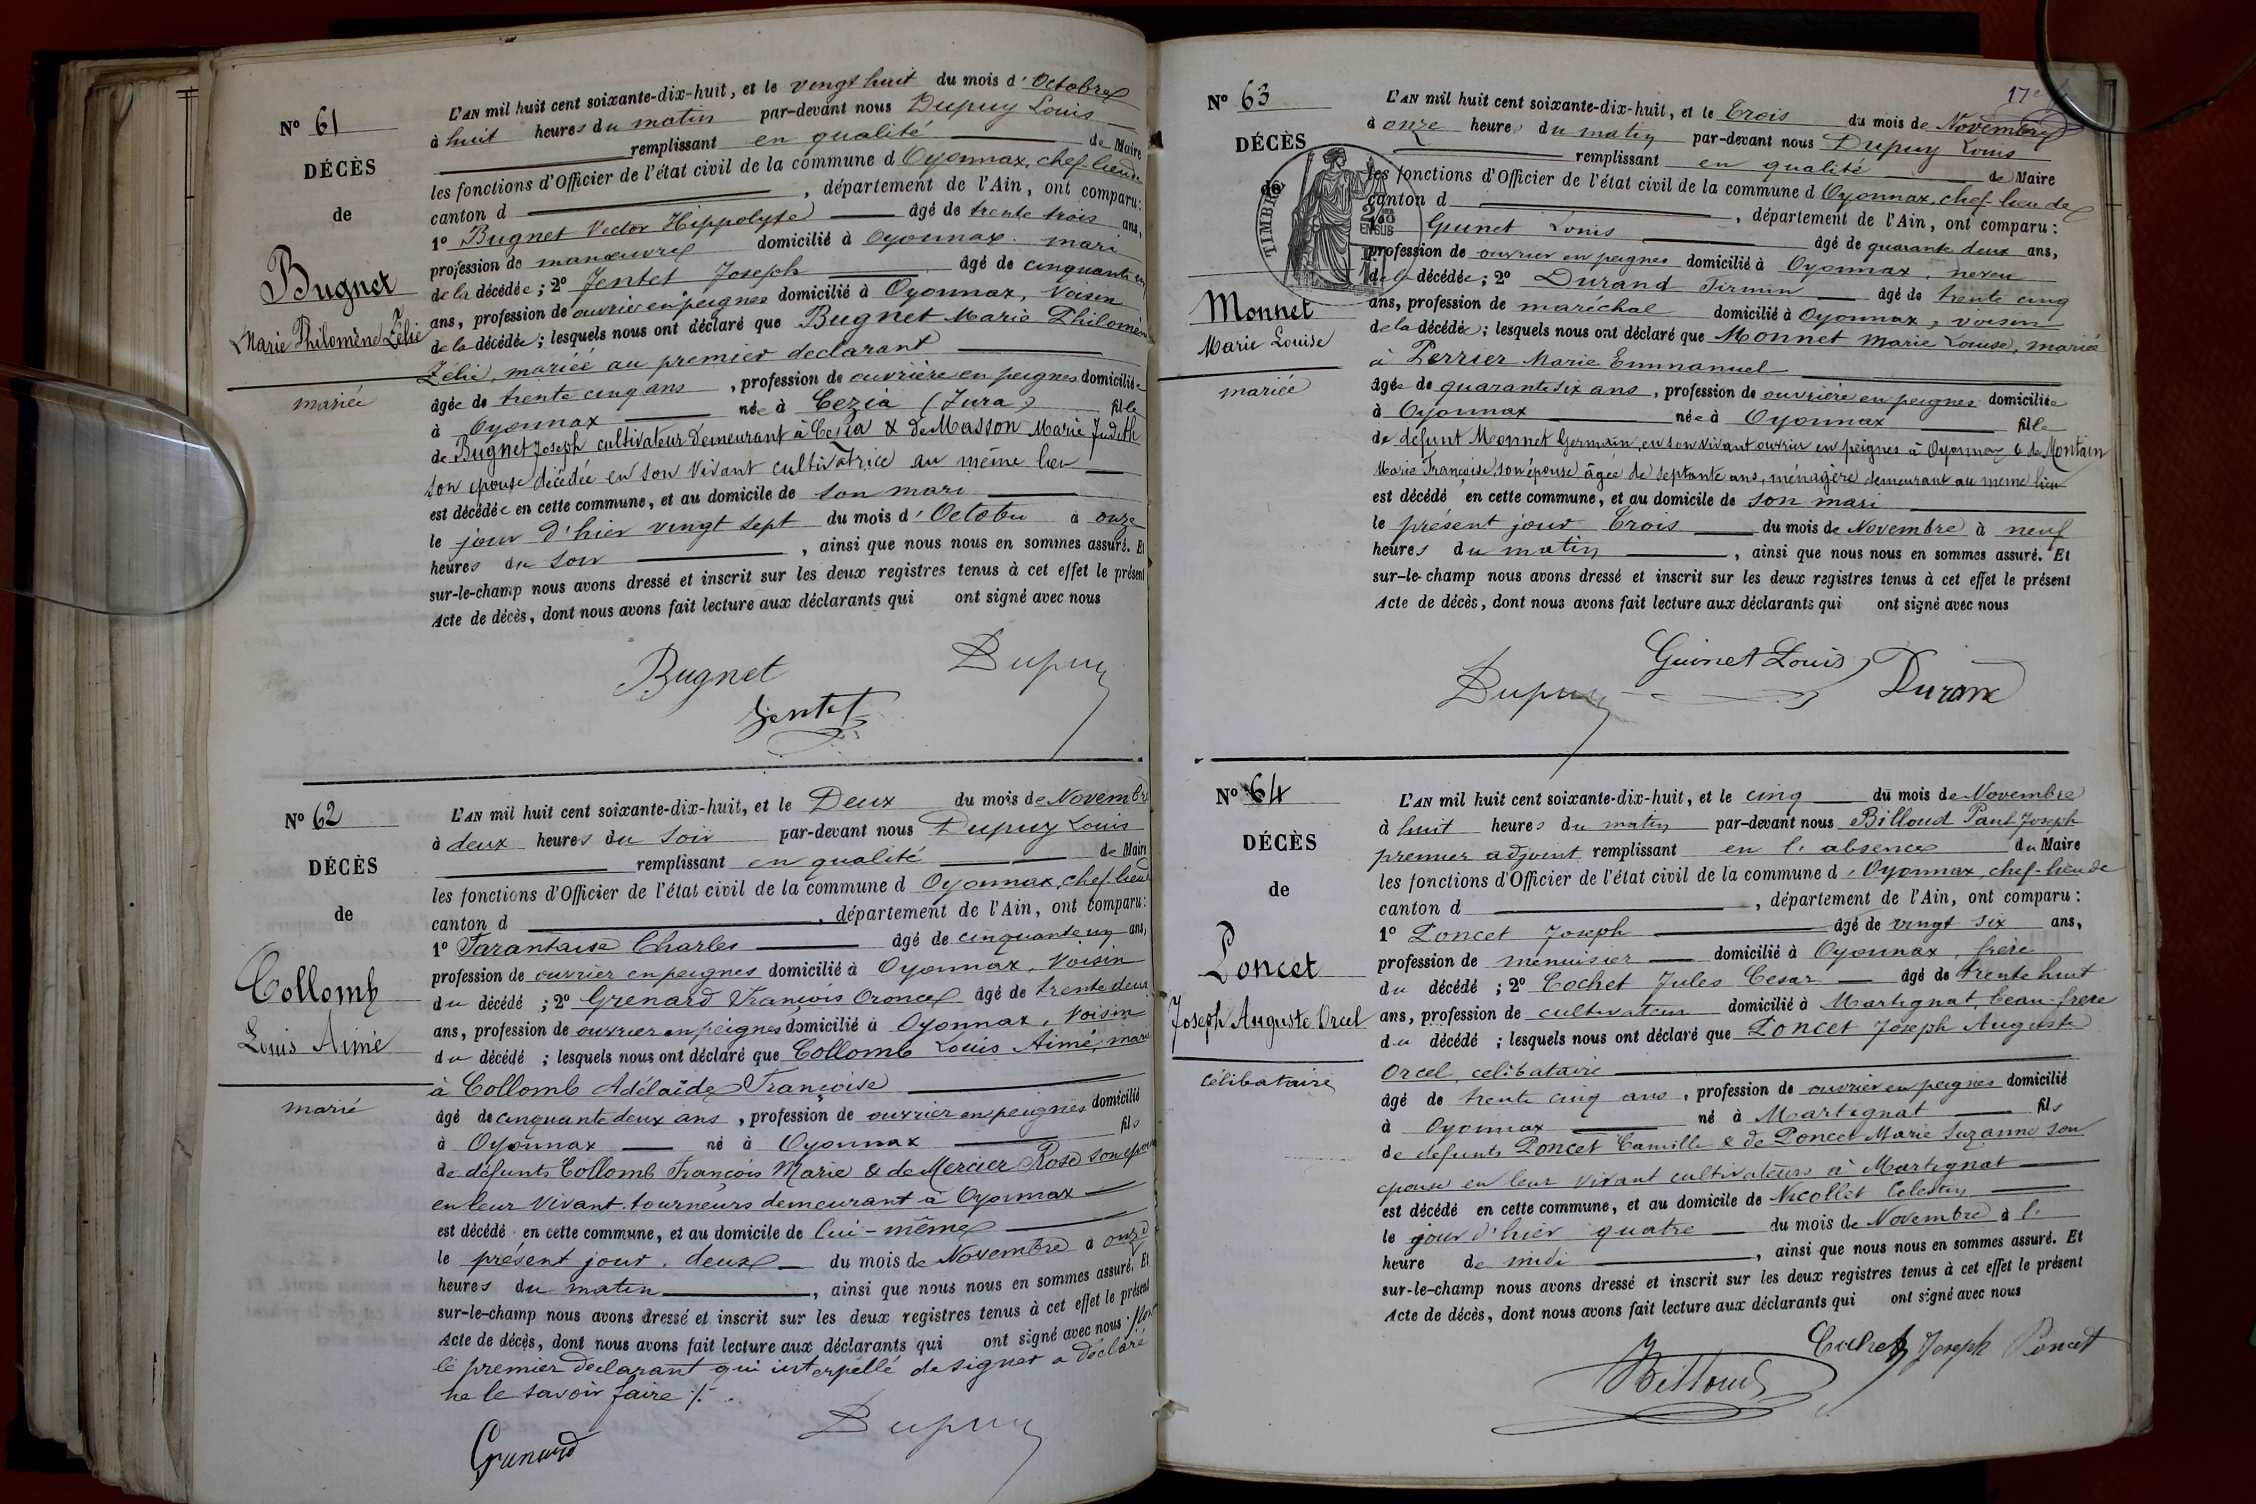 N° 61
DÉCÈS
de
Bugnet
Marie Philomène Zélie
mariée
L'AN mil huit cent soixante-dix-huit, et le vingt huit du mois d'Octobre
à huit heures du matin par-devant nous Dupuy Louis
remplissant en qualité de Maire
les fonctions d'Officier de l'état civil de la commune d Oyonnax, chef-lieu de
canton d , département de l'Ain, ont comparu :
1° Bugnet Victor Hippolyte âgé de trente trois ans,
profession de manœuvre domicilié à Oyonnax. mari
de la décédée ; 2° Jentet Joseph âgé de cinquante un
ans, profession de ouvrier en peignes domicilié à Oyonnax, Voisin
de la décédée ; lesquels nous ont déclaré que Bugnet Marie Philomène
Zélie, mariée au premier declarant
âgée de trente cinq ans , profession de ouvrière en peignes domiciliée
à Oyonnax née à Cezia (Jura) fille
de Bugnet Joseph cultivateur Demeurant à Cezia & de Masson Marie Judith
son epouse décédée en son Vivant cultivatrice au même lieu
est décédée en cette commune, et au domicile de son mari
le jour d'hier vingt sept du mois d'Octobre à onze
heures du soir , ainsi que nous nous en sommes assuré. Et
sur-le-champ nous avons dressé et inscrit sur les deux registres tenus à cet effet le présent
Acte de décès, dont nous avons fait lecture aux déclarants qui ont signé avec nous
Bugnet Dupuy
Jentet
N° 62
DÉCÈS
de
Collomb
Louis Aimé
marié
L'AN mil huit cent soixante-dix-huit, et le Deux du mois de Novembre
à deux heures du soir par-devant nous Dupuy Louis
remplissant en qualité de Maire
les fonctions d'Officier de l'état civil de la commune d Oyonnax, chef-lieu de
canton d , département de l'Ain, ont comparu :
1° Tarantaise Charles âgé de cinquante un ans,
profession de ouvrier en peignes domicilié à Oyonnax, Voisin
du décédé ; 2° Grenard François Oronce âgé de trente deux
ans, profession de ouvrier en peignes domicilié à Oyonnax, Voisin
du décédé ; lesquels nous ont déclaré que Collomb Louis Aimé, marié
à Collomb Adélaïde Françoise
âgé de cinquante deux ans , profession de ouvrier en peignes domicilié
à Oyonnax né à Oyonnax fils
de défunts Collomb François Marie & de Mercier Rose son epouse
en leur Vivant tourneurs demeurant à Oyonnax
est décédé en cette commune, et au domicile de lui-même
le présent jour deux du mois de Novembre à onze
heures du matin , ainsi que nous nous en sommes assuré. Et
sur-le-champ nous avons dressé et inscrit sur les deux registres tenus à cet effet le présent
Acte de décès, dont nous avons fait lecture aux déclarants qui ont signé avec nous
le premier declarant qui interpellé de signer a declaré
ne le savoir faire ./.
Grenard Dupuy
N° 63
DÉCÈS
de
TIMBRE
Monnet
Marie Louise
mariée
L'AN mil huit cent soixante-dix-huit, et le trois du mois de Novembre
à onze heures du matin par-devant nous Dupuy Louis
remplissant en qualité de Maire
les fonctions d'Officier de l'état civil de la commune d Oyonnax, chef-lieu de
canton d , département de l'Ain, ont comparu :
Guinet Louis âgé de quarante deux ans,
profession de ouvrier en peignes domicilié à Oyonnax, neveu
de la décédée ; 2° Durand Firmin âgé de trente cinq
ans, profession de maréchal domicilié à Oyonnax, voisin
de la décédée ; lesquels nous ont déclaré que Monnet Marie Louise, mariée
à Perrier Marie Emmanuel
âgée de quarante six ans , profession de ouvrière en peignes domiciliée
à Oyonnax née à Oyonnax fille
de défunt Monnet Germain, en son vivant ouvrier en peignes à Oyonnax & de Montain
Marie Françoise, son épouse âgée de septante ans, ménagère demeurant au même lieu
est décédé en cette commune, et au domicile de son mari
le présent jour trois du mois de Novembre à neuf
heures du matin , ainsi que nous nous en sommes assuré. Et
sur-le-champ nous avons dressé et inscrit sur les deux registres tenus à cet effet le présent
Acte de décès, dont nous avons fait lecture aux déclarants qui ont signé avec nous
Dupuy Guinet Louis Durand
N° 64
DÉCÈS
de
Poncet
Joseph Auguste Orcel
célibataire
L'AN mil huit cent soixante-dix-huit, et le cinq du mois de Novembre
à huit heures du matin par-devant nous Billoud Paul Joseph
premier adjoint remplissant en l'absence du Maire
les fonctions d'Officier de l'état civil de la commune d'Oyonnax, chef-lieu de
canton d , département de l'Ain, ont comparu :
1° Poncet Joseph âgé de vingt six ans,
profession de menuisier domicilié à Oyonnax, frère
du décédé ; 2° Cochet Jules Cesar âgé de trente huit
ans, profession de cultivateur domicilié à Martignat, beau-frère
du décédé ; lesquels nous ont déclaré que Poncet Joseph Auguste
Orcel, celibataire
âgé de trente cinq ans , profession de ouvrier en peignes domicilié
à Oyonnax né à Martignat fils
de defunts Poncet Camille & de Poncet Marie Suzanne son
epouse en leur vivant cultivateurs à Martignat
est décédé en cette commune, et au domicile de Nicollet Celestin
le jour d'hier quatre du mois de Novembre à l'
heure de midi , ainsi que nous nous en sommes assuré. Et
sur-le-champ nous avons dressé et inscrit sur les deux registres tenus à cet effet le présent
Acte de décès, dont nous avons fait lecture aux déclarants qui ont signé avec nous
Billoud Cochet Joseph Poncet